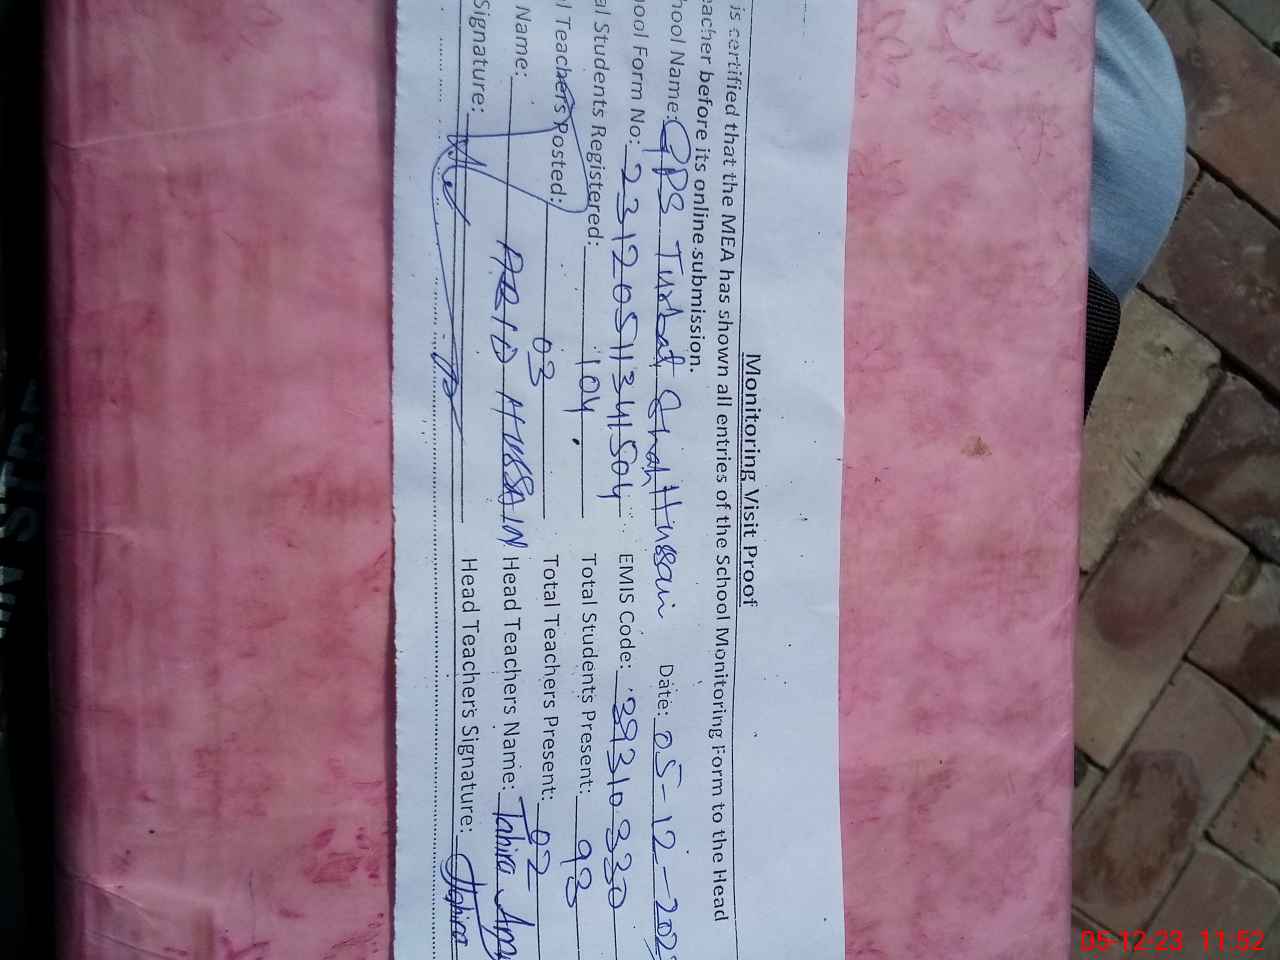 Monitoring Visit Proof
is certified that the MEA has shown all entries of the School Monitoring Form to the Head
eacher before its online submission.
hool Name: GPS Turbat Shah Hussain Date: 05-12-202
ool Form No: 23120511341504 EMIS Code: 39310330
al Students Registered: 104 Total Students Present: 93
l Teachers Posted: 03 Total Teachers Present: 02
Name: ABID HUSSAIN Head Teachers Name: Tahira
Signature: Head Teacher's Signature: Tahira
05-12-23 11:52